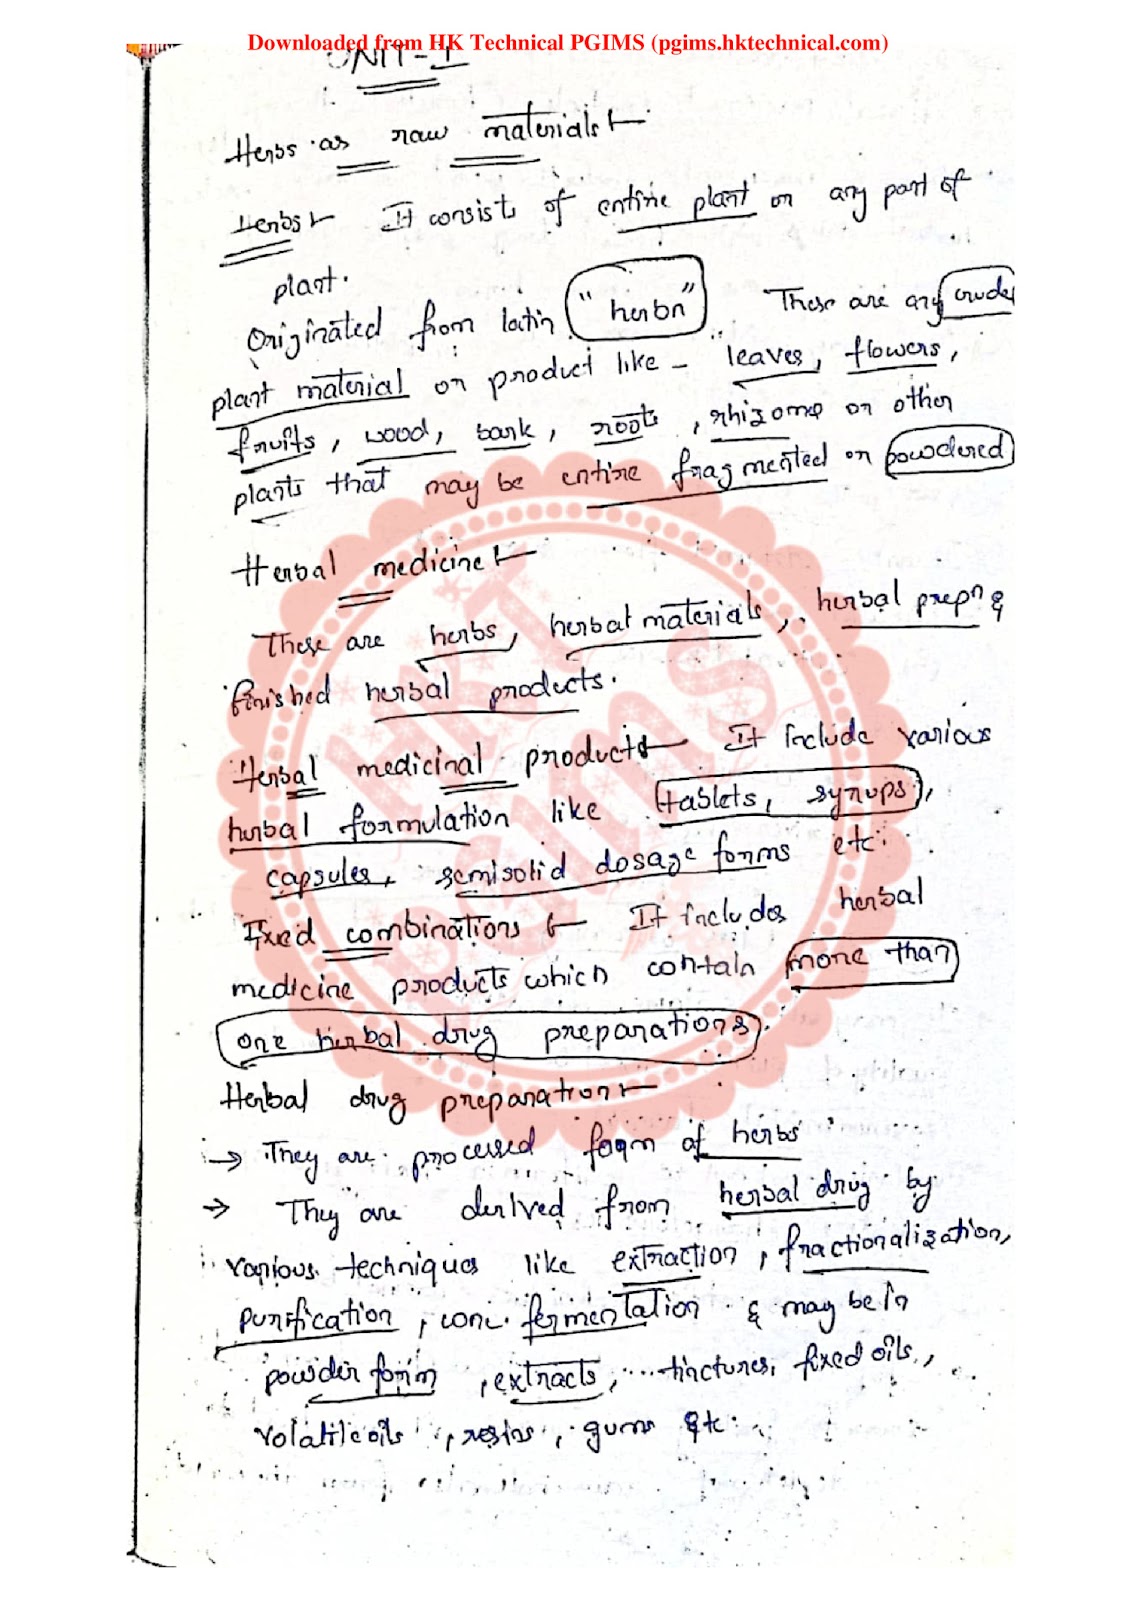 Downloaded from HK Technical PGIMS (pgims.hktechnical.com)
UNIT-I
Herbs as raw materials :-
Herbs :- It consists of entire plant or any part of
plant.
Originated from latin "herba" These are any crude
plant material or product like - leaves, flowers,
fruits, wood, bark, roots, rhizome or other
plants that may be entire fragmented or powdered
Herbal medicine :-
These are herbs, herbal materials, herbal prepn &
finished herbal products.
Herbal medicinal products :- It include various
herbal formulation like tablets, syrups,
capsules, semisolid dosage forms etc.
Fixed combinations :- It includes herbal
medicine products which contain more than
one herbal drug preparations.
Herbal drug preparation :-
→ They are processed form of herbs
→ They are derived from herbal drug by
various techniques like extraction, fractionalization,
purification, conc. fermentation & may be in
powder form, extracts, tinctures, fixed oils,
volatile oils, resins, gums etc.
HKT
PGIMS